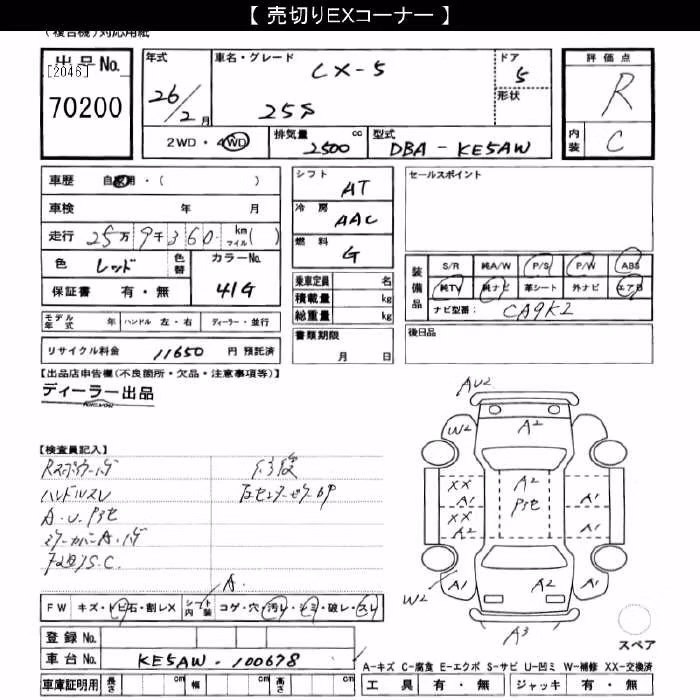 【 売切りEXコーナー 】
(複合機)対応用紙
出品No.
[2046]
70200
年式
26/2月
車名・グレード
CX-5
25S
ドア
5
形状
2WD・4WD
排気量 2500 cc
型式 DBA-KE5AW
評価点
R
内装
C
車歴 自家用・( )
車検 年 月
走行 25万9千360 km マイル( )
色 レッド 色替
カラーNo.
41G
保証書 有・無
モデル年式 年 ハンドル 左・右 ディーラー・並行
リサイクル料金 11650 円 預託済
シフト
AT
冷房
AAC
燃料
G
乗車定員 名
積載量 kg
総重量 kg
書類期限
月 日
セールスポイント
装備品
S/R 純A/W P/S P/W ABS
純TV 純ナビ 革シート 外ナビ エアB
ナビ型番: CA9K2
後日品
【出品店申告欄(不良箇所・欠品・注意事項等)】
ディーラー出品
【検査員記入】
ハンドルスレ
A.U.P3セ
修復
AU2
W2
A2
XX
XX
A2
A2
P3セ
A1
A1
A1
W2
A2
A1
A3
スペア
A.
FW キズ・トビ石・割レX シフト内装 コゲ・穴・汚レ・シミ・破レ・スレ
登録 No.
車台 No. KE5AW-100678
車庫証明用 長さ cm 幅 cm 高さ cm
A-キズ C-腐食 E-エクボ S-サビ U-凹ミ W-補修 XX-交換済
工具 有・無 ジャッキ 有・無